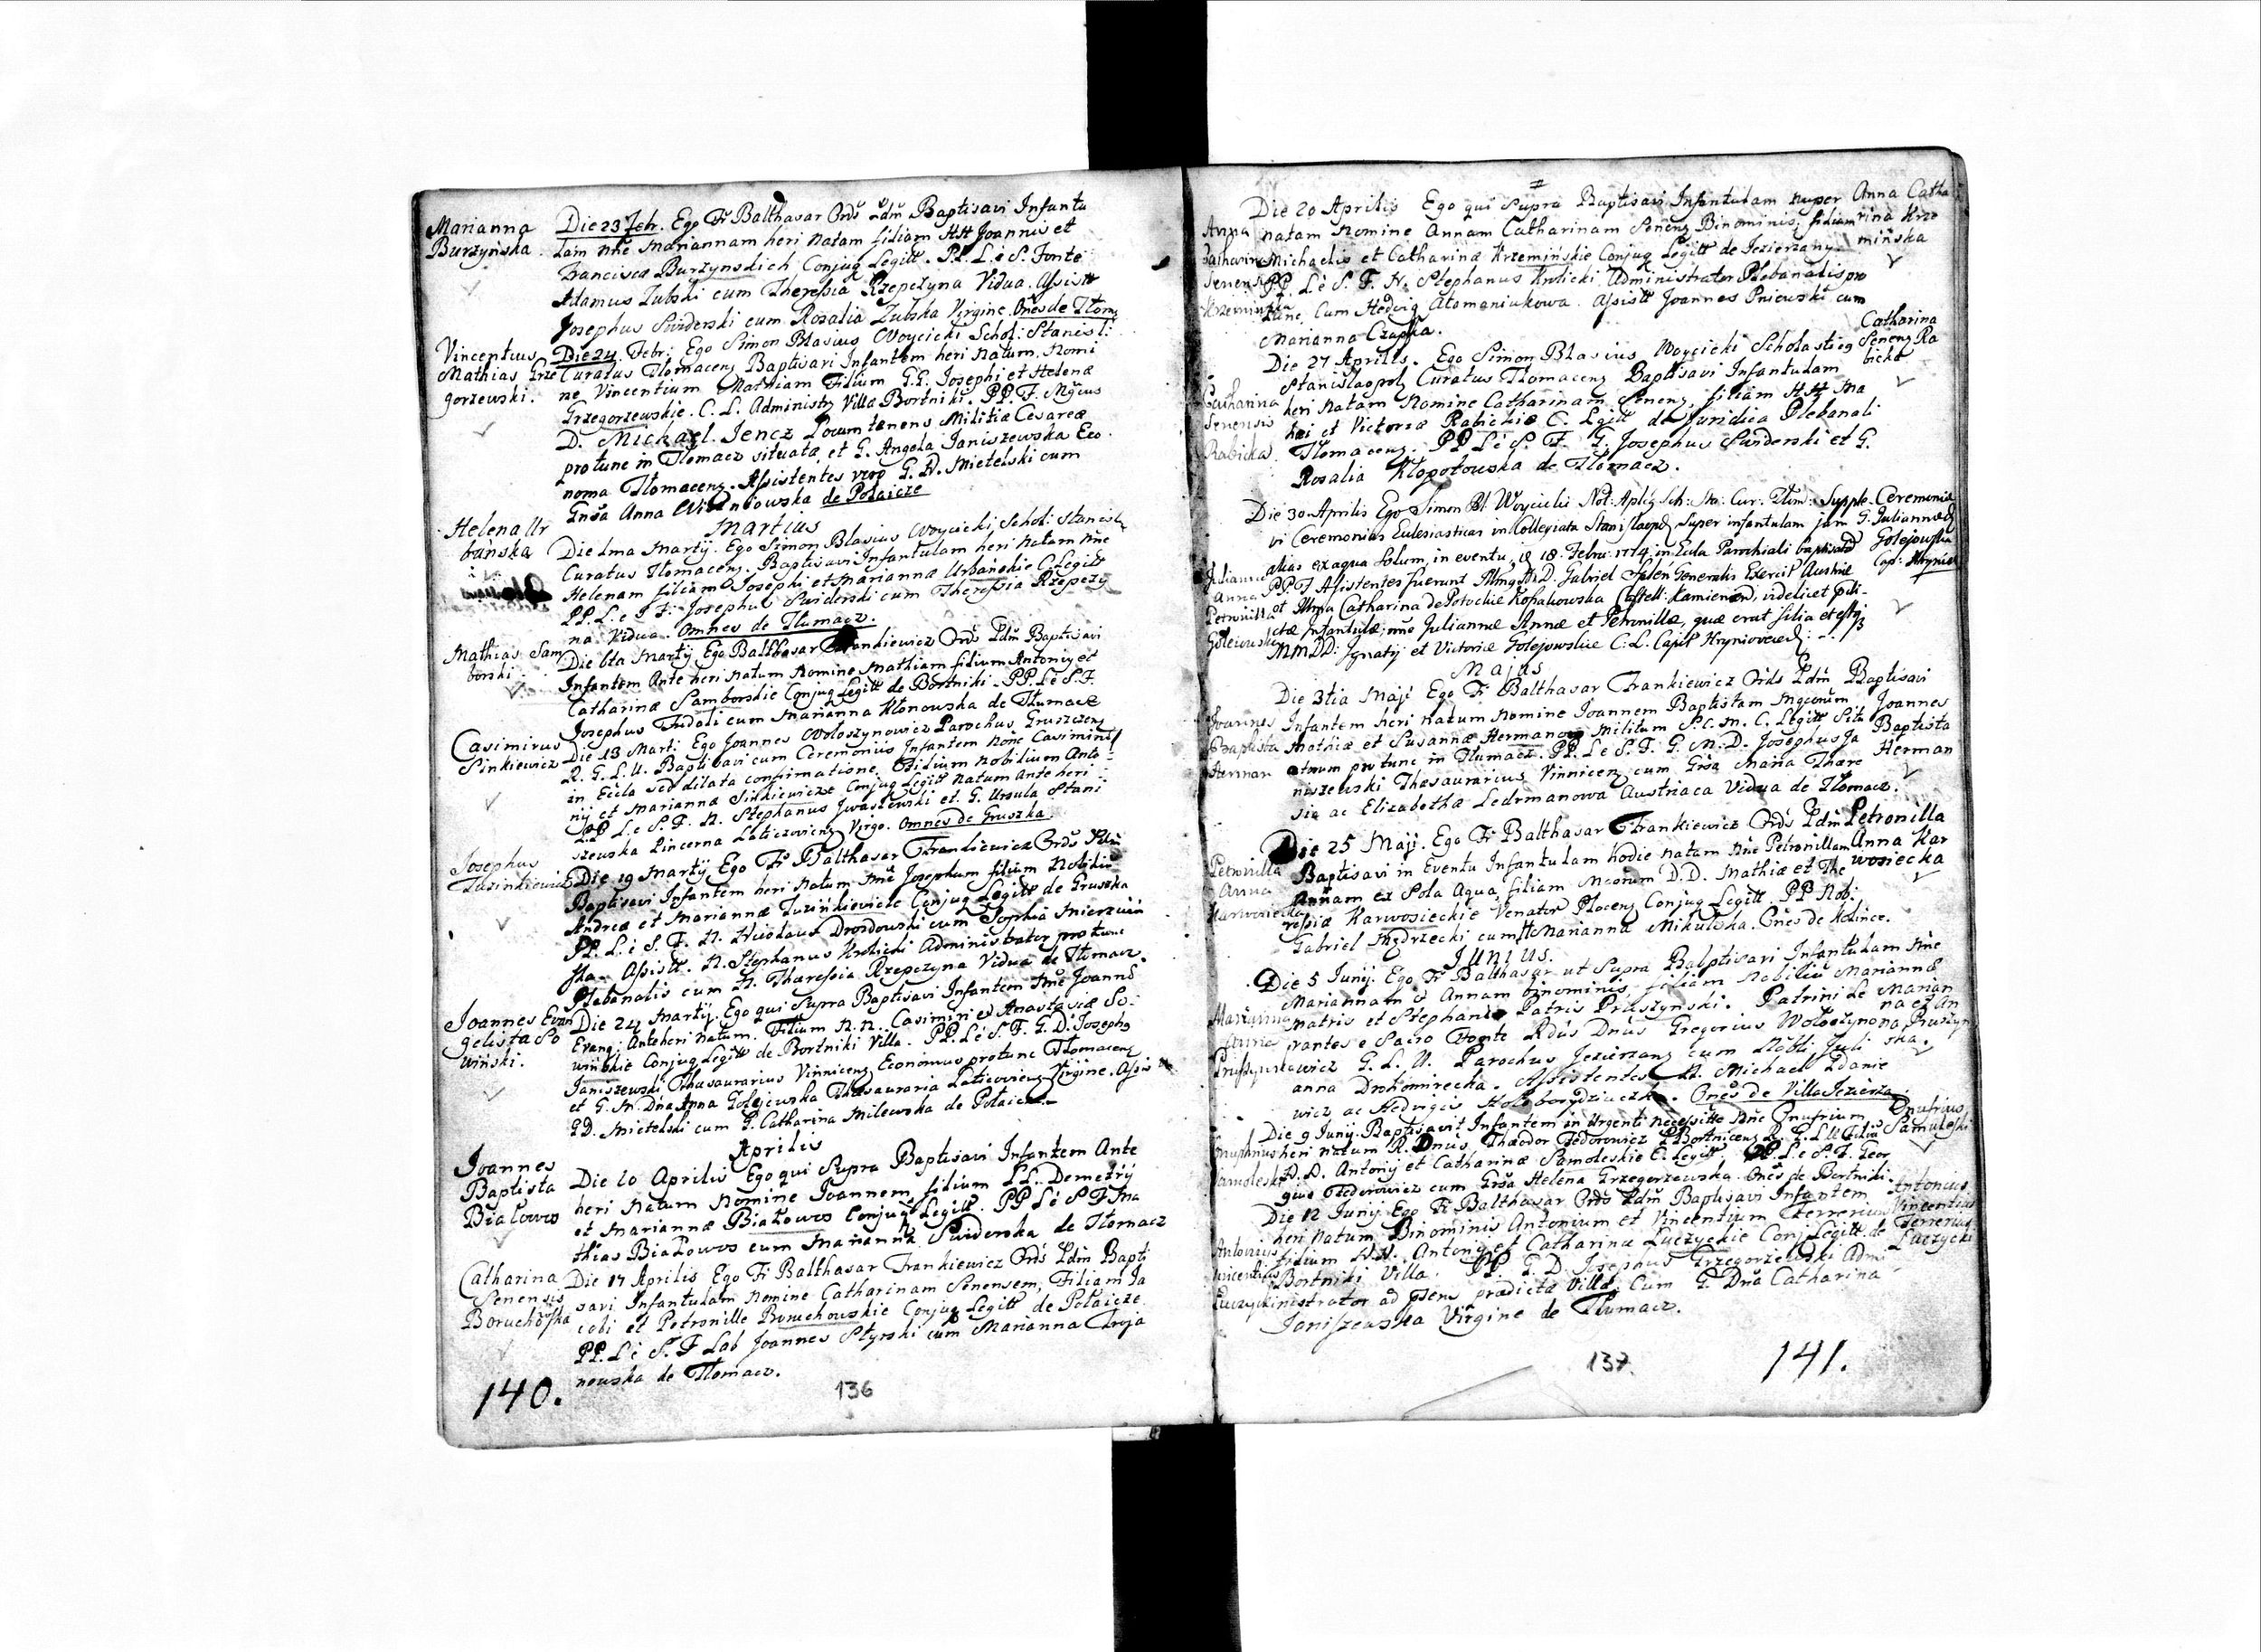 Marianna
Burzynska
Die 23 Febr. Ego Fr Balthasar Ords Pdm Baptisavi Infantu
lam nne Mariannam heri natam filiam HH Joannis et
Franciscæ Burzynskich Conjug Legitt. PP. L. e S. Fonte
Adamus Zubski cum Theressia Rzepczyna Vidua. Assistt
Josephus Swiderski cum Rosalia Zubska Virgine. Ones de Tlom
Vincentius
Mathias Grze
gorzewski.
Die 24. Febr: Ego Simon Blasius Woycicki Schol: Stanisl:
Curatus Tlomacens Baptisavi Infantem heri natum, Nomi
ne Vincentium Mathiam Filium G.G. Josephi et Helenæ
Grzegorzewskie. C. L. Administr Villæ Bortniki. PP. F. Mgcus
D. Michael Jencz Locum tenens Militiæ Cesareæ
pro tunc in Tlomacz situatæ, et G. Angela Janiszewska Eco
noma Tlomacens. Assistentes vero G. D. Mietelski cum
Gnsa Anna Wisniowska de Polaicze
Martius
Helena Ur
banska
Die 1ma Martij. Ego Simon Blasius Woycicki Schol: Stanisl
Curatus Tlomacens. Baptisavi Infantulam heri natam nne
Helenam filiam Josephi et Mariannæ Urbanskie C. Legitt
PP. L. e S F. Josephus Swiderski cum Theressia Rzepczy
na Vidua. Omnes de Tlumacz.
Mathias Sam
borski.
Die 6ta Martij Ego Balthasar Frankiewicz Ords Pdm Baptisavi
Infantem Ante heri natum Nomine Mathiam filium Antonij et
Catharinæ Samborskie Conjug Legitt de Bortniki. PP. L e S. F.
Josephus Fidoli cum Marianna Klonowska de Tlumacz
Casimirus
Sinkiewicz
Die 13 Mart: Ego Joannes Woloszynowicz Parochus Gruszcens
R. G. L. U. Baptisavi cum Ceremoniis Infantem None Casimirū
in Eccla sed dilata confirmatione. Filium Nobilium Anto
nij et Mariannæ Sinkiewicze Conjug Legitt natum ante heri
PP L e S. F. N. Stephanus Iwaszewski et G. Ursula Stani
szewska Pincerna Laticzoviens Virgo. Omnes de Gruszka
Josephus
Tusinkiewicz
Die 19 Martij Ego Fr Balthasar Frankiewicz Ords Pdm
Baptisavi Infantem heri natum nne Josephum filium Nobiliū
Andreæ et Mariannæ Tuzinkiewicze Conjug Legitt de Gruszka
PP. L. e S. F. N. Nicolaus Drozdowski cum Sophia Mierzwin
ska. Assistt. N. Stephanus Krolicki Administrator pro tunc
Plebanalis cum H. Tharessia Rzepczyna Vidua de Tlomacz.
Joannes Evan
gelista So
winski.
Die 24 Martij. Ego qui Supra Baptisavi Infantem Nne Joannē
Evang: Anteheri natum. Filium N.N. Casimiri et Anastasiæ So
winskie Conjug Legitt de Bortniki Villa. PP. L e S. F. G. D. Josephg
Janiszewski Thasaurarius Vinnicens Economus protunc Tlomacens
et G. M. Dna Anna Golejewska Thasauraria Laticoviens Virgine. Assis
G D. Mietelski cum G. Catharina Milewska de Polaicze
Aprilis
Joannes
Baptista
Bialowos
Die 10 Aprilis Ego qui Supra Baptisavi Infantem Ante
heri natum Nomine Joannem filium LL. Demetrij
et Mariannæ Bialowos Conjug Legitt. PP L e S F Ma
thias Bialowos cum Marianna Swiderska de Tlomacz
Catharina
Senensis
Boruchowska
Die 17 Aprilis Ego Fr Balthasar Frankiewicz Ords Pdm Bapti
savi Infantulam Nomine Catharinam Senensem, Filiam Ja
cobi et Petronille Boruchowskie Conjug Legitt de Polaicze
PP. L e S. F Lab Joannes Styrski cum Marianna Troja
nowska de Tlomacz.
140.
136
Anna
Catharina
Senens
Krzeminska
Die 20 Aprilis Ego qui Supra Baptisavi Infantulam nuper
natam Nomine Annam Catharinam Senens Binominis, filiam
Michaelis et Catharinæ Krzeminskie Conjug Legitt de Jezierzany.
PP. L e S. F. N. Stephanus Krolicki Administrator Plebanalis pro
tunc. Cum Hedvig Atamaniukowa. Assistt Joannes Pniewski cum
Marianna Czapka.
Anna Catha
rina Krze
minska
Die 27 Aprilis. Ego Simon Blasius Woycicki Scholasticg
Stanislaopol Curatus Tlomacens Baptisavi Infantulam
heri natam Nomine Catharinam Senens, filiam HH Ma
thei et Victoriæ Rabickiæ C. Lgitt de Juridica Plebanali
Tlomacens. PP L e S. F. G. Josephus Swiderski et G.
Rosalia Klopotowska de Tlomacz.
Catharina
Senensis
Rabicka
Catharina
Senens Ra
bicka
Die 30 Aprilis Ego Simon Bl. Woycicki Not: Aplis Sch: Sta: Cur: Tlum: Supple
vi Ceremonias Eclesiasticas in Collegiata Stanislaopol Super infantulam jam
alias ex aqua solum, in eventu, d 18. Febru: 1774 in Eccla Parochiali baptisatā
PP. F Assistentes fuerunt Illmg D. D. Gabriel Splén Generalis Exercit Austriæ
et Illma Catharina de Potockie Kossakowska Castell: Kamienen, videlicet prædi
ctæ Infantulæ, nne Juliannæ Annæ et Petronillæ, quæ erat filia
MM. DD: Ignatij et Victoriæ Golejowskie C. L. Capit Hryniovecen
Julianna
Anna
Petronilla
Golejewska
Ceremoniæ
G. Juliannæ
Golejowska
Majus
Die 3tia Maji Ego Fr Balthasar Frankiewicz Ords Pdm Baptisavi
Infantem heri natum Nomine Joannem Baptistam Mgcorum
Mathiæ et Susannæ Hermanow Militum S.C.M. C. Legitt Situ
atorum pro tunc in Tlumacz. PP. L e S. F. G. M. D. Josephus Ja
niszewski Thasaurarius Vinnicens cum Grsa Maria Thare
sia ac Elizabetha Ledrmanowa Austriaca Vidua de Tlomacz.
Joannes
Baptista
Herman
Joannes
Baptista
Herman
Die 25 Maji. Ego Fr Balthasar Frankiewicz Ords Pdm
Baptisavi in Eventu Infantulam hodie natam nne Petronillam
Annam ex Sola Aqua, filiam Mcorum D.D. Mathiæ et The
resiæ Karwosieckie Venator Plocens Conjug Legitt. PP Nob:
Gabriel Medrzecki cum H Marianna Mikulska. Ones de Kolince.
Petronilla
Anna
Karwosiecka
Petronilla
Anna Kar
wosiecka
JUNIUS.
Die 5 Junij. Ego Fr Balthasar ut Supra Babptisavi Infantulam nne
Mariannam & Annam binominis, filiam Nobiliū Mariannæ
Matris et Stephani Patris Pruszynski. Patrini Le
vantes e Sacro Fonte Rdus Dnus Gregorius Woloszyno
wicz G. L. U. Parochus Jezierzans cum Nobli Juli
anna Drohomirecka. Assistentes N. Michael Zdanie
wicz ac Hedvigis Holoborydziuczka. Ones de Villa Jezierza
Marianna
Anna
Pruszynska
Marian
na et An
na Pruszyn
ska.
Die 9 Junij. Baptisavit Infantem in Urgenti necessitte nne Onufrium
heri natum R. Dnus Theodor Fedorowicz P Bortnicens R. G. L U Filiū
D.D. Antonij et Catharinæ Samoleskie C. Legitt. PP. L. e S. F. Geor
gius Fedorowicz cum Grsa Helena Grzegorzewska. Ones de Bortniki.
Onuphrius
Samoleski
Onufrius
Samoleski
Die 12 Junij. Ego Fr Balthasar Ords Pdm Baptisavi Infantem
heri natum Binominis Antonium et Vincentium Ferrerium
filium N.N. Antonij et Catharinæ Luczyckie Conj Legitt de
Bortniki Villa. PP. G. D. Josephus Grzegorzewski Admi
nistrator ad psens prædictæ Villæ, Cum G. Dna Catharina
Janiszewska Virgine de Tlumacz.
Antonius
Vincentius
Luczycki
Antonius
Vincentius
Ferrerius
Luczycki
137.
141.